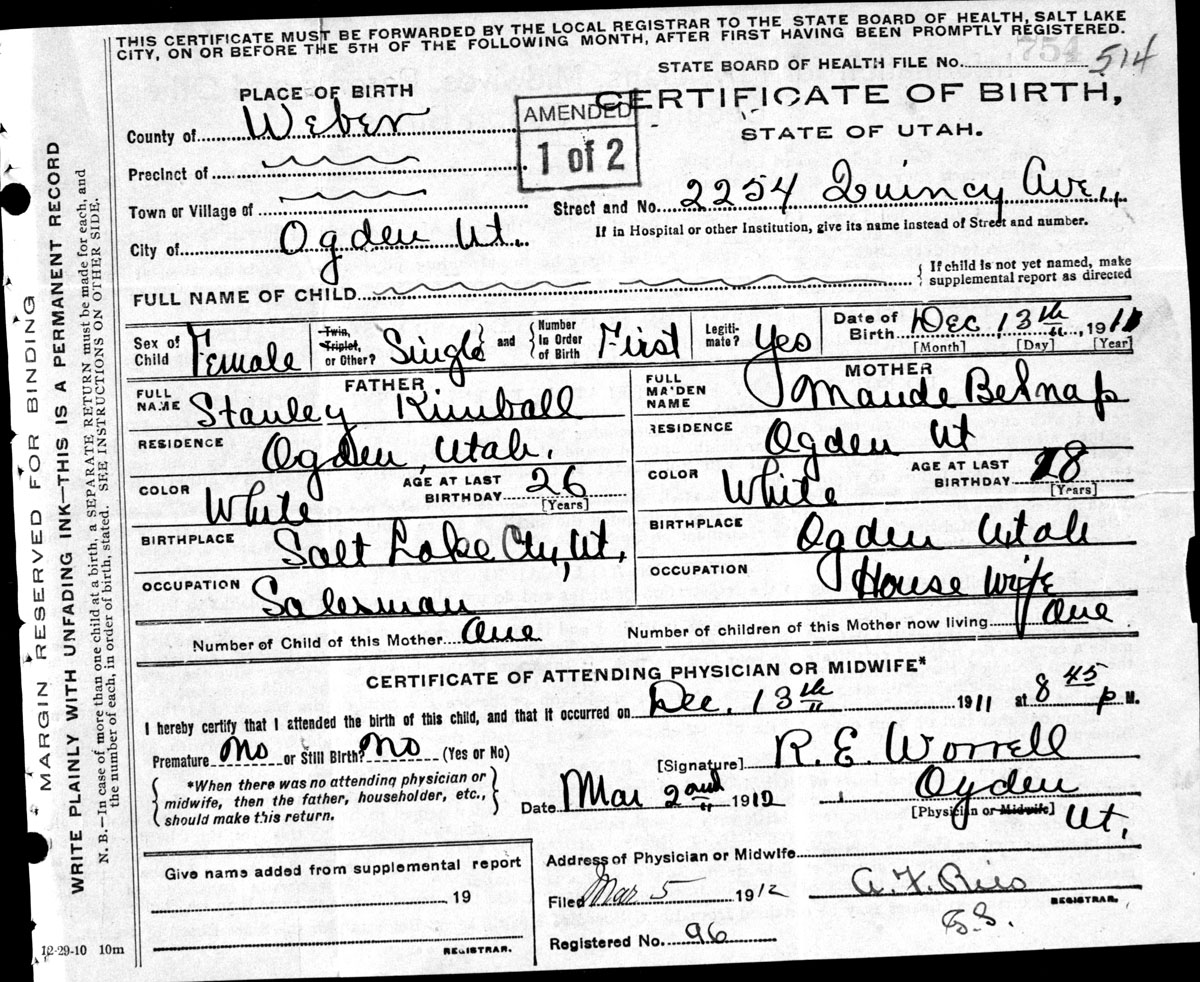 THIS CERTIFICATE MUST BE FORWARDED BY THE LOCAL REGISTRAR TO THE STATE BOARD OF HEALTH, SALT LAKE
CITY, ON OR BEFORE THE 5TH OF THE FOLLOWING MONTH, AFTER FIRST HAVING BEEN PROMPTLY REGISTERED.
754
STATE BOARD OF HEALTH FILE No. 514
PLACE OF BIRTH
CERTIFICATE OF BIRTH,
STATE OF UTAH.
AMENDED
1 of 2
County of Weber
Precinct of
Town or Village of
Street and No. 2254 Quincy Ave.,
If in Hospital or other Institution, give its name instead of Street and number.
City of Ogden Ut.
FULL NAME OF CHILD
If child is not yet named, make
supplemental report as directed
Sex of Child Female
Twin, Triplet, or Other? Single and Number In Order of Birth First
Legiti-mate? Yes
Date of Birth Dec 13th, 1911
[Month] [Day] [Year]
FATHER
FULL NAME Stanley Kimball
RESIDENCE Ogden, Utah.
COLOR White AGE AT LAST BIRTHDAY 26 [Years]
BIRTHPLACE Salt Lake Cty, Ut.
OCCUPATION Salesman
MOTHER
FULL MAIDEN NAME Maude Belnap
RESIDENCE Ogden Ut
COLOR White AGE AT LAST BIRTHDAY 28 [Years]
BIRTHPLACE Ogden Utah
OCCUPATION House Wife
Number of Child of this Mother One
Number of children of this Mother now living One
CERTIFICATE OF ATTENDING PHYSICIAN OR MIDWIFE*
I hereby certify that I attended the birth of this child, and that it occurred on Dec. 13th 1911 at 8 45 P M.
Premature No or Still Birth? No (Yes or No)
*When there was no attending physician or
midwife, then the father, householder, etc.,
should make this return.
[Signature] R. E. Worrell
Date Mar 2nd 1912
Ogden
[Physician or Midwife]
Ut.
Address of Physician or Midwife
Give name added from supplemental report
19
REGISTRAR.
Filed Mar 5 1912
REGISTRAR.
Registered No. 96
12-29-10 10m
MARGIN RESERVED FOR BINDING
WRITE PLAINLY WITH UNFADING INK—THIS IS A PERMANENT RECORD
N. B.—In case of more than one child at a birth, a SEPARATE RETURN must be made for each, and
the number of each, in order of birth, stated. SEE INSTRUCTIONS ON OTHER SIDE.